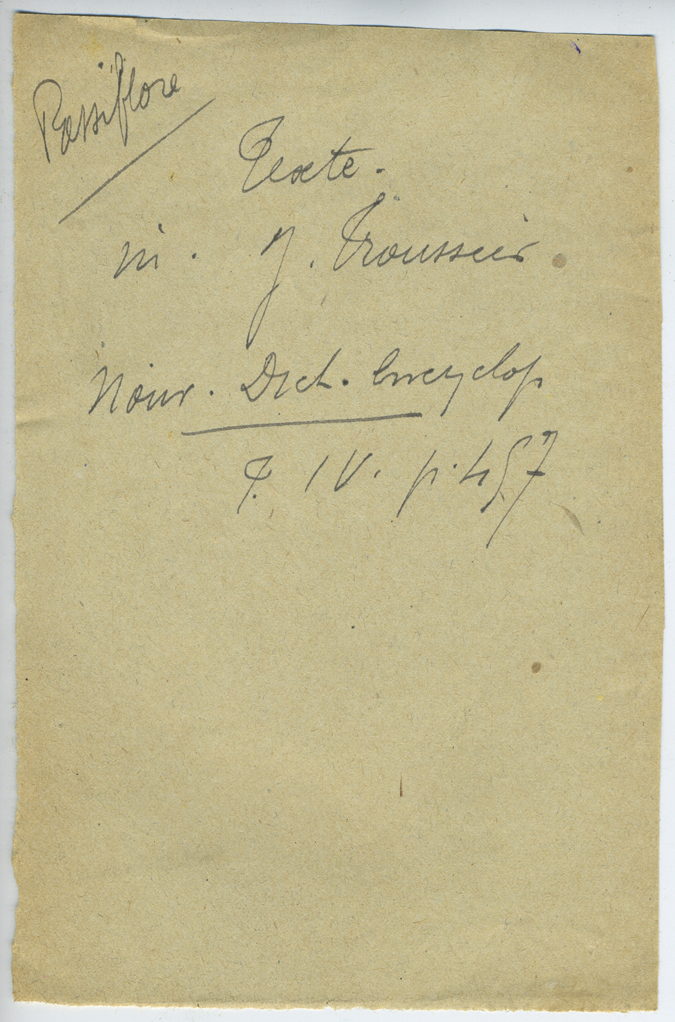 Passiflore
Texte.
in. J. Trousset.
Nouv. Dict. Encyclop
T. IV. p. 457